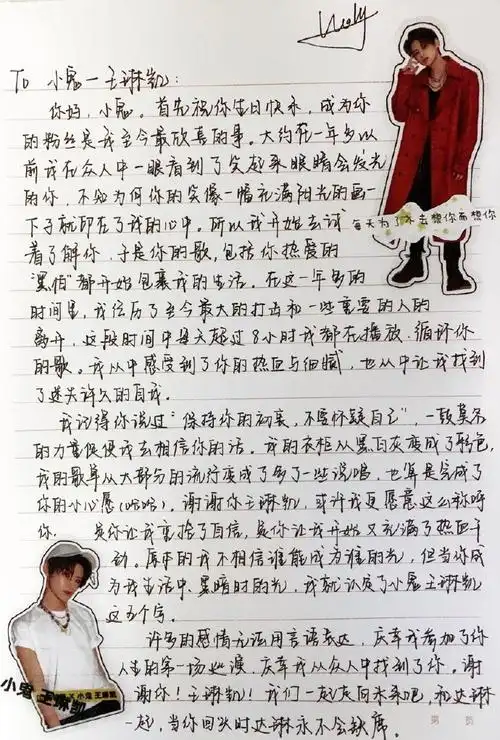 To 小鬼-王琳凯:
你好,小鬼。首先祝你生日快乐,成为你
的粉丝是我至今最欣喜的事。大约在一年多以
前我在众人中一眼看到了笑起来眼睛会发光
的你,不知为何你的笑像一幅充满阳光的画一
下子就印在了我的心中。所以我开始去试
每天为了不去想你而想你
着了解你,于是你的歌,包括你热爱的
"黑怕"都开始包裹我的生活。在这一年多的
时间里,我经历了至今最大的打击和一些重要的人的
离开,这段时间中每天超过8小时我都在播放、循环你
的歌。我从中感受到了你的热血与细腻,也从中让我找到
了迷失许久的自我。
我记得你说过"保持你的初衷,不要怀疑自己",一股莫名
的力量促使我去相信你的话。我的衣柜从黑白灰变成了彩色,
我的歌单从大部分的流行变成了多了一些说唱,也算是完成了
你的小心愿(哈哈)。谢谢你王琳凯,或许我更愿意这么称呼
你。是你让我重拾了自信,是你让我开始又充满了热血干
劲。原本的我不相信谁能成为谁的光,但当你成
为我生活中、黑暗时的光,我就认定了小鬼王琳凯
这五个字。
许多的感情无法用言语表达,庆幸我参加了你
人生的第一场巡演,庆幸我从众人中找到了你。谢
谢你!王琳凯!我们一起奔向未来吧,和达琳
一起,当你回头时达琳永不会缺席。
小鬼 王琳凯
小鬼 王琳凯
第 页